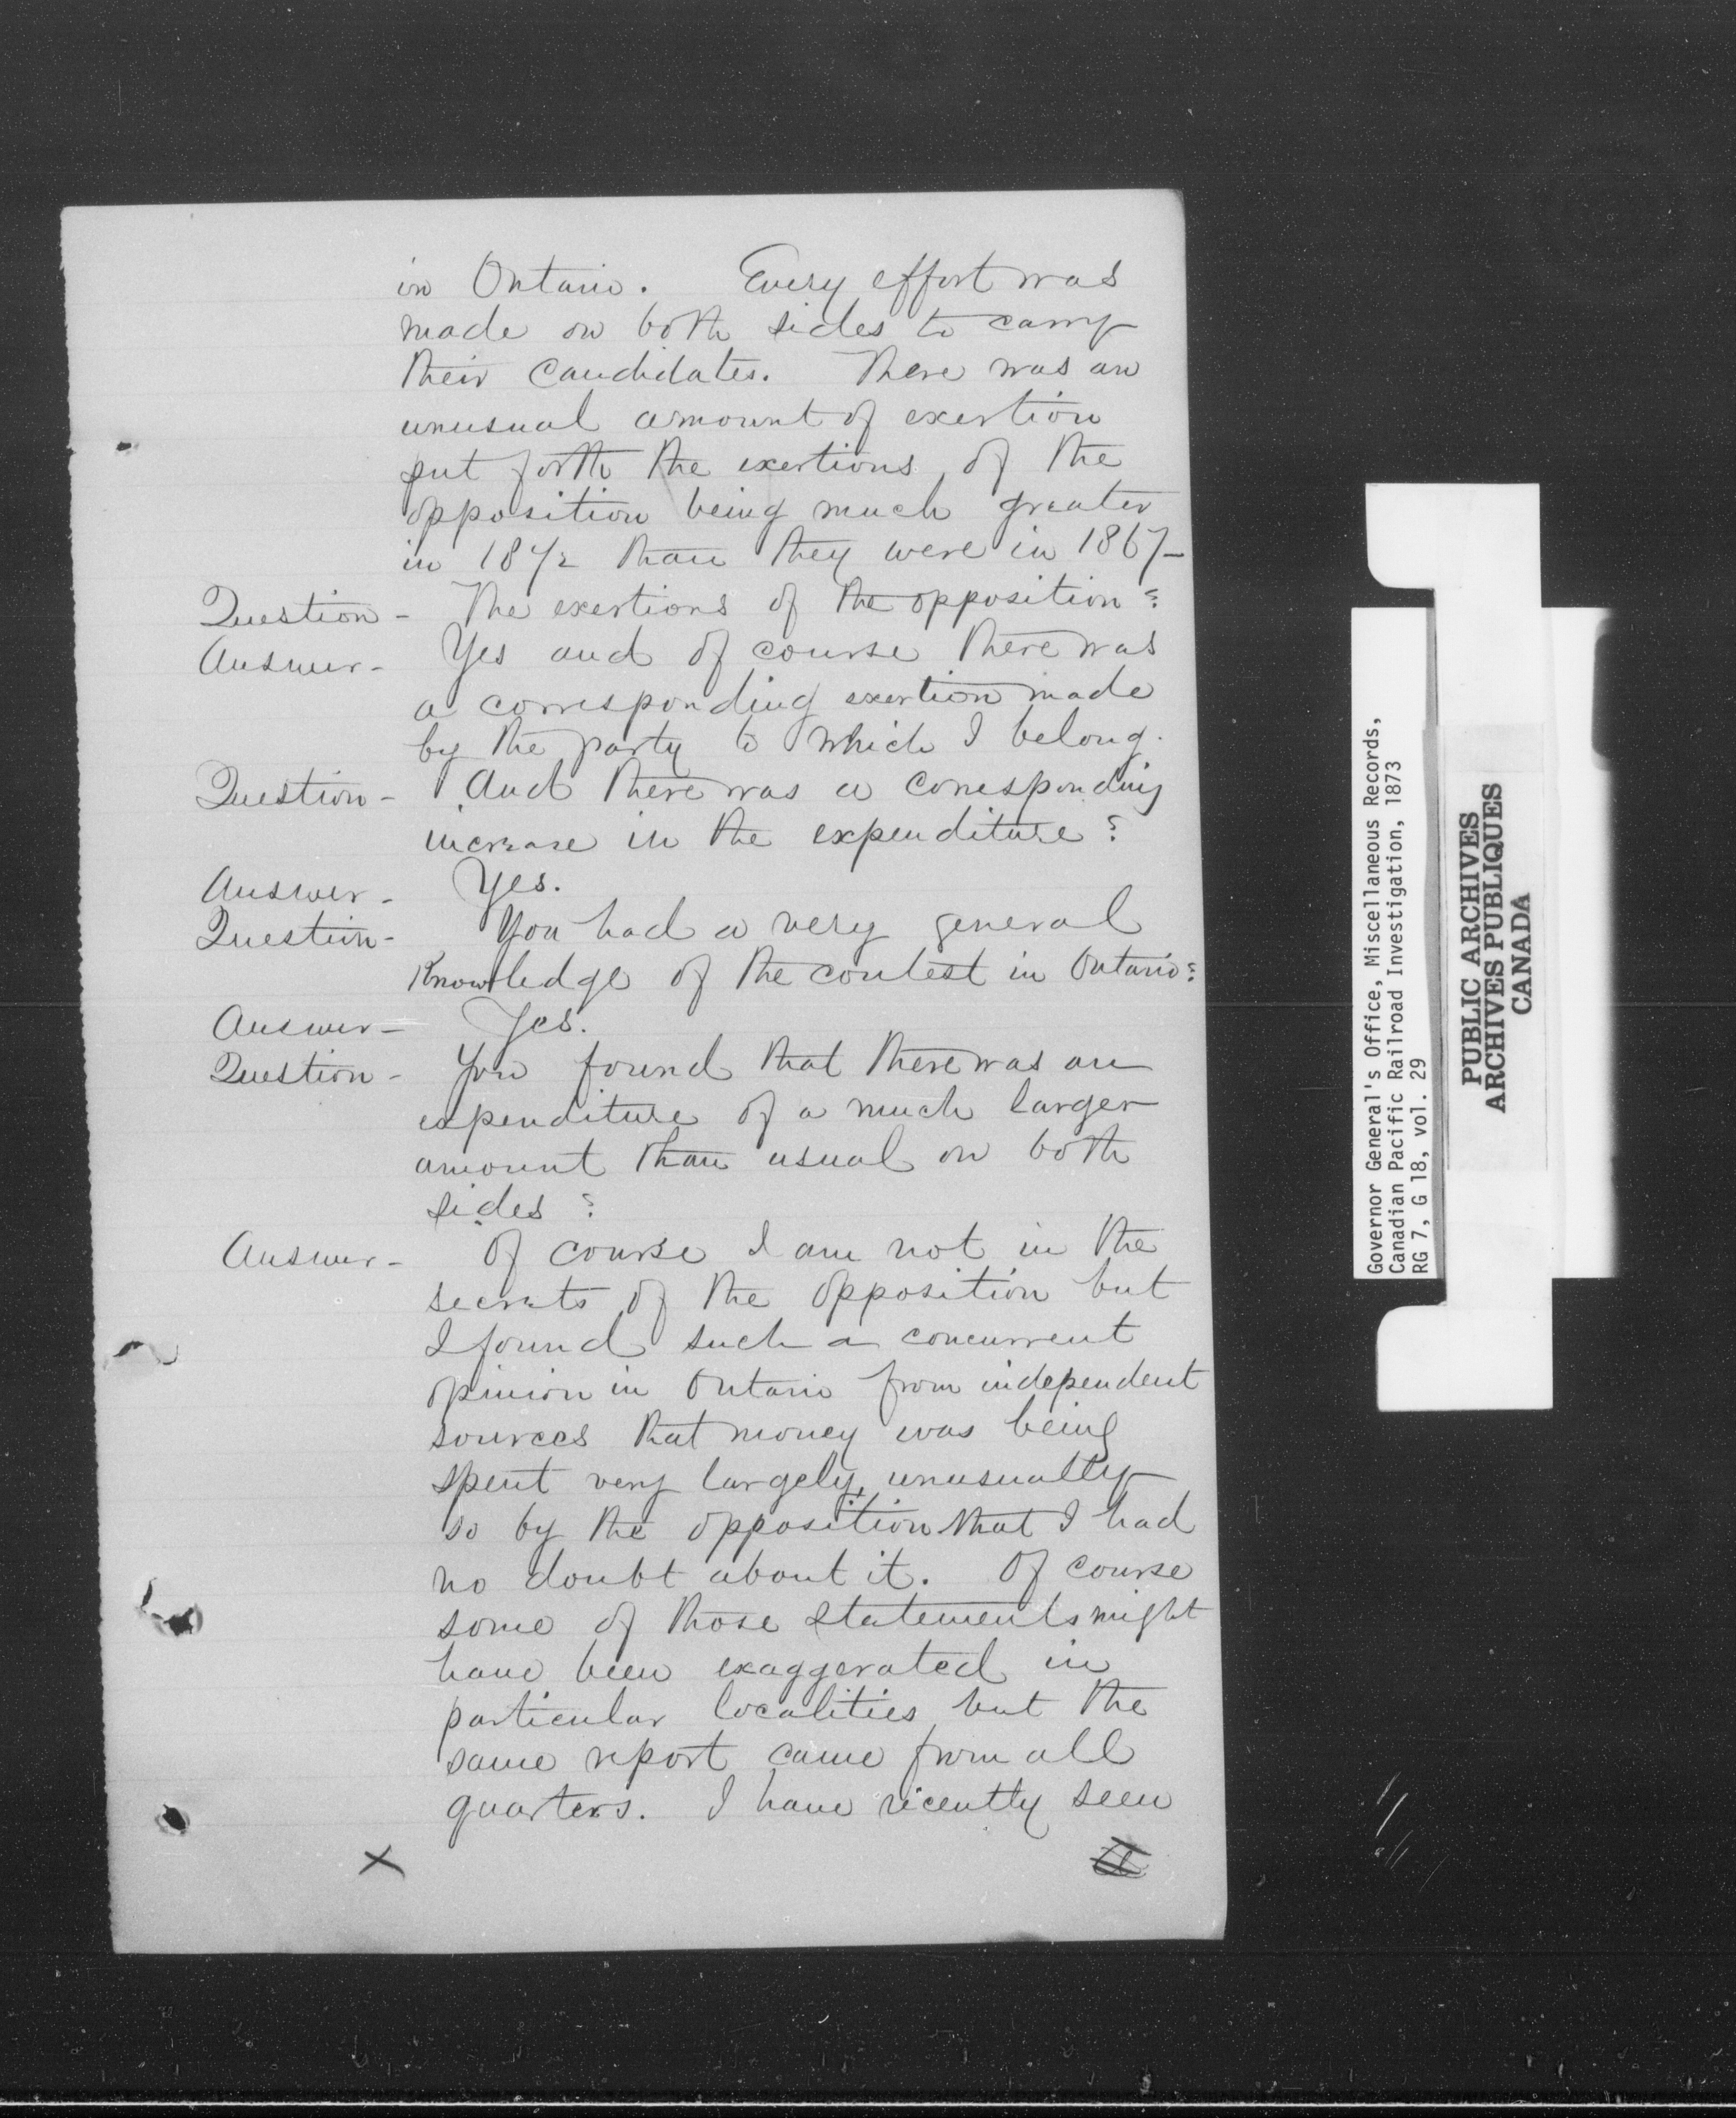 in Ontario. Every effort was
made on both sides to carry
their candidates. There was an
unusual amount of exertion
put forth the exertions of the
opposition being much greater
in 1872 than they were in 1867-
Question - The exertions of the opposition?
Answer - Yes and of course there was
a corresponding exertion made
by the party to which I belong.
Question - And there was a corresponding
increase in the expenditure?
Answer - Yes.
Question - You had a very general
Knowledge of the contest in Ontario?
Answer - Yes.
Question - You found that there was an
expenditure of a much larger
amount than usual on both
sides?
Answer - Of course I am not in the
secrets of the opposition but
I found such a concurrent
opinion in Ontario from independent
sources that money was being
spent very largely, unusually
so by the opposition that I had
no doubt about it. Of course
some of those statements might
have been exaggerated in
particular localities but the
same report came from all
quarters. I have recently seen
X
Governor General's Office, Miscellaneous Records,
Canadian Pacific Railroad Investigation, 1873
RG 7, G 18, vol. 29
PUBLIC ARCHIVES
ARCHIVES PUBLIQUES
CANADA